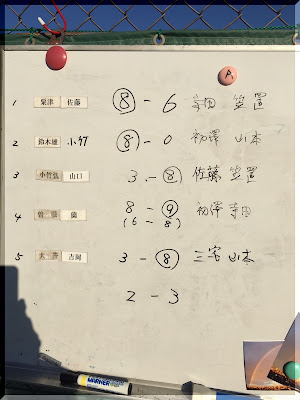 A
1 粟津 佐藤 8 - 6 寺田 笠置
2 鈴木雄 小竹 8 - 0 初澤 山本
3 小竹弘 山口 3 - 8 佐藤 笠置
4 8 - 9 初澤 寺田
(6 - 8)
5 吉岡 3 - 8 三宅 山本
2 - 3